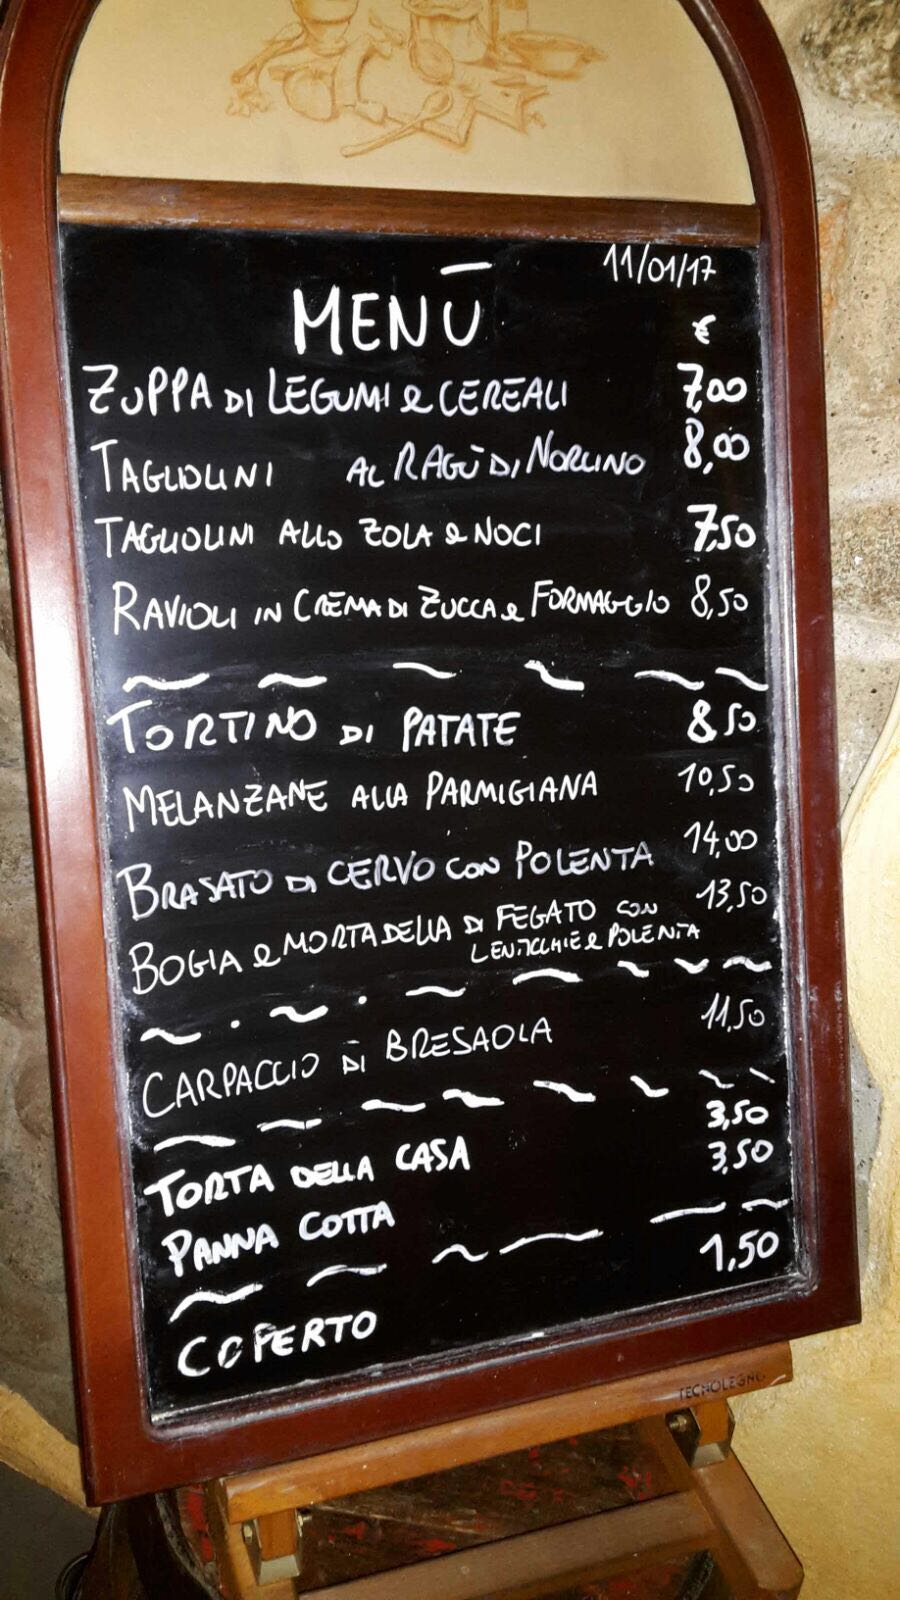 11/01/17
MENÙ €
ZUPPA DI LEGUMI e CEREALI 7,00
TAGLIOLINI AL RAGÙ DI NORCINO 8,00
TAGLIOLINI ALLO ZOLA e NOCI 7,50
RAVIOLI IN CREMA DI ZUCCA e FORMAGGIO 8,50
TORTINO DI PATATE 8,50
MELANZANE ALLA PARMIGIANA 10,50
BRASATO DI CERVO CON POLENTA 14,00
BOGIA e MORTADELLA DI FEGATO CON 13,50
LENTICCHIE e POLENTA
CARPACCIO DI BRESAOLA 11,50
TORTA DELLA CASA 3,50
PANNA COTTA 3,50
COPERTO 1,50
TECNOLEGNO